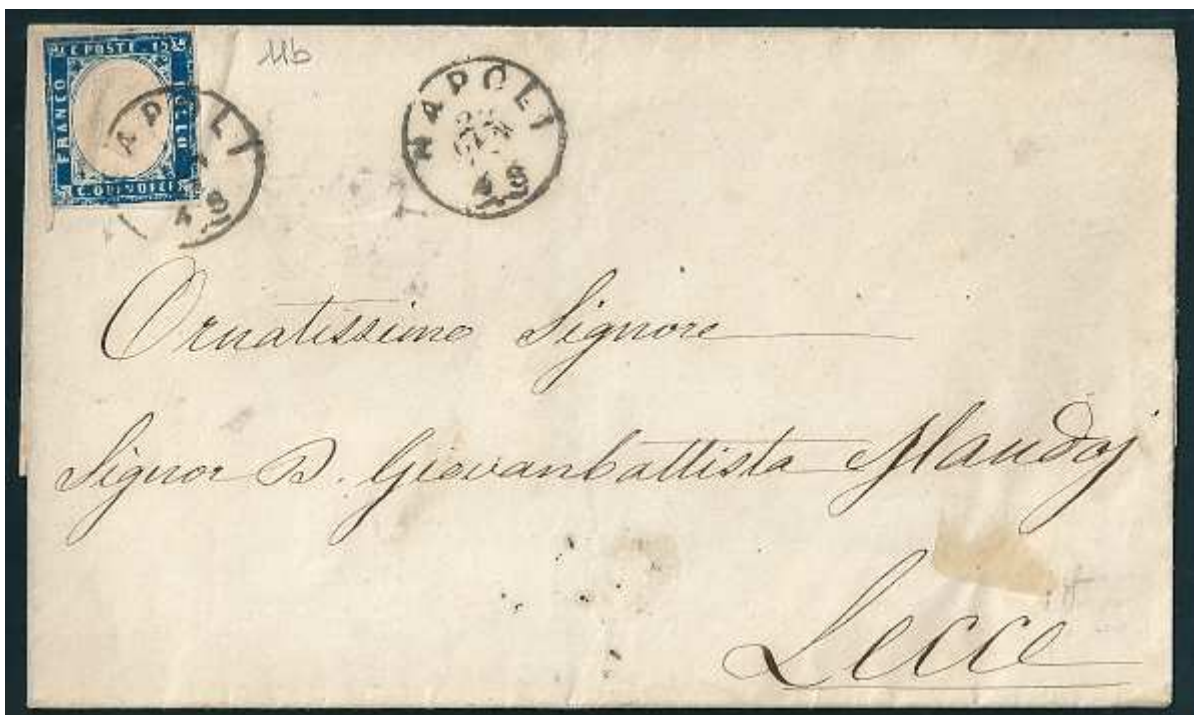 11b
FRANCO
BOLLO
C. QUINDICI
NAPOLI
GEN
4 S
Ornatissimo Signore
Signor D. Giovanbattista Mandoj
Lecce